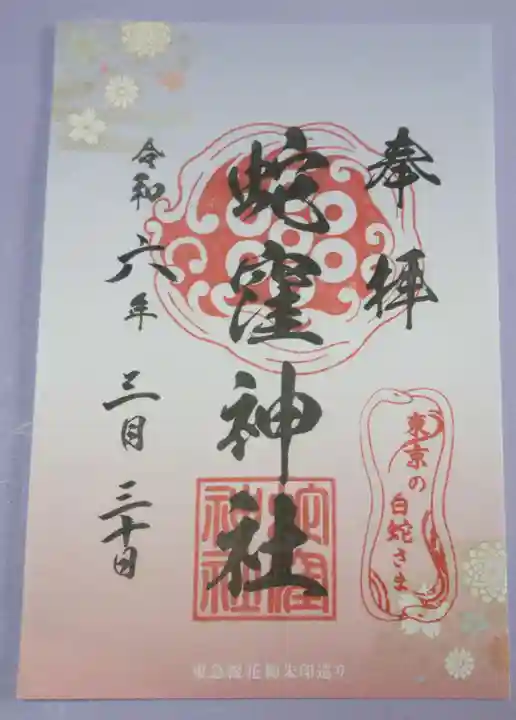 奉拝
蛇窪神社
東京の
白蛇さま
令和六年三月三十日
蛇窪
神社
東急線花御朱印巡り